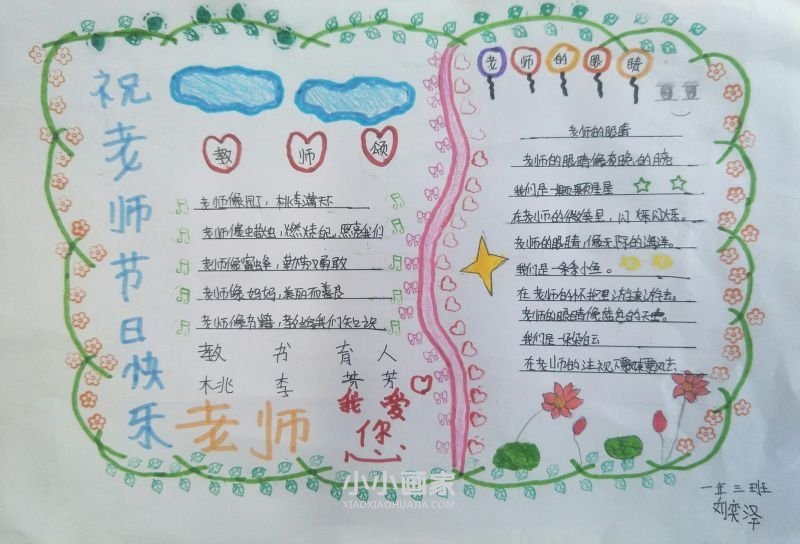 祝老师节日快乐
教师颂
老师像园丁，桃李满天
老师像蜡烛，燃烧自己，照亮我们
老师像蜜蜂，勤劳又勇敢
老师像妈妈，美丽而善良
老师像书籍，教给我们知识
教书育人
桃李芬芳
老师
我爱你
老师的眼睛
老师的眼睛
老师的眼睛像夜晚的月亮
我们是一颗颗星星
在老师的微笑里，闪烁闪烁。
老师的眼睛，像无际的海洋。
我们是一条条小鱼。
在老师的怀抱里游来游去。
老师的眼睛像蓝色的天空
我们是一朵朵白云
在老师的注视下飘来飘去
一年三班
刘奕泽
小小画家
XIAOXIAOHUAJIA.COM